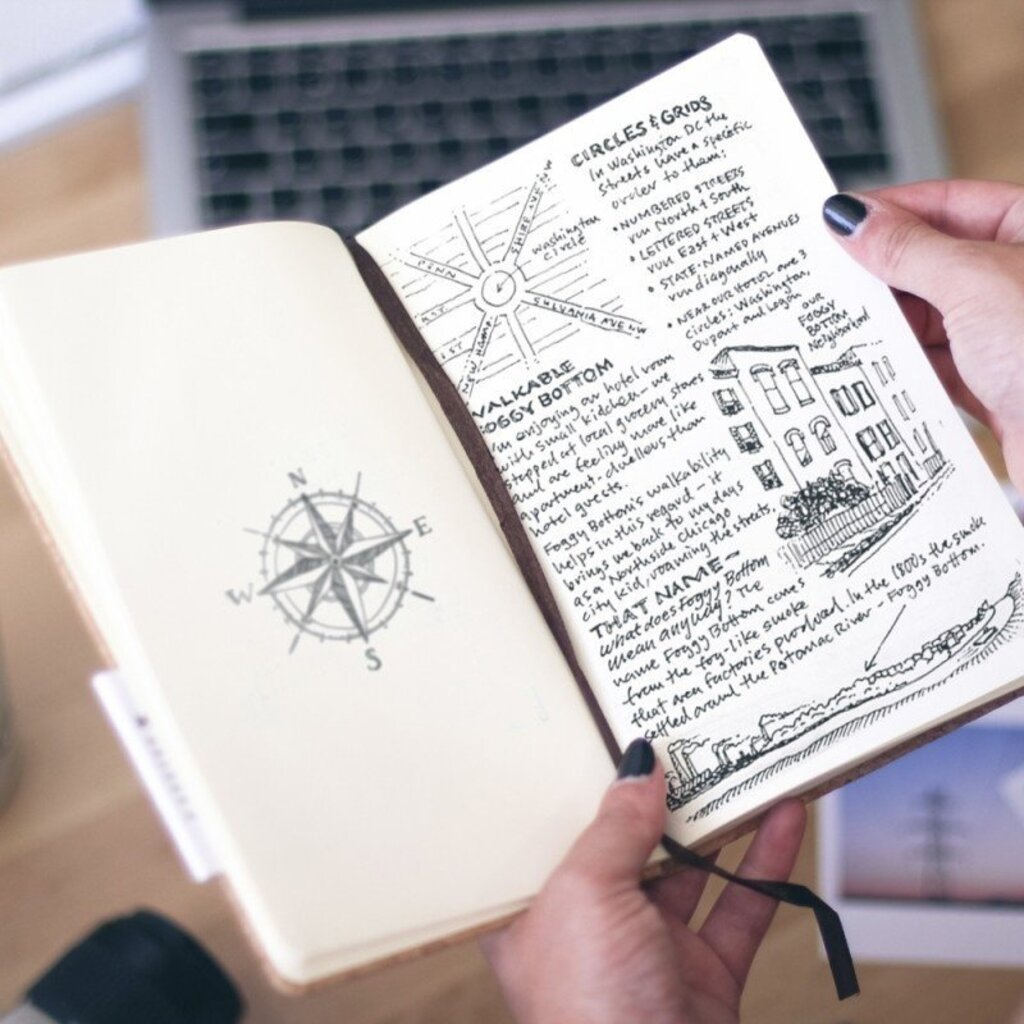 N
E
W
S
CIRCLES & GRIDS
In Washington DC the
streets have a specific
order to them:
• NUMBERED STREETS
run North & South
• LETTERED STREETS
run East & West
• STATE-NAMED AVENUES
run diagonally
• NEAR OUR HOTEL are 3
circles: Washington,
Dupont and Logan
Washington
Circle
SHIRE AVE NW
PENN
SYLVANIA AVE NW
NEW HAMP
K ST.
OUR
FOGGY
BOTTOM
Neighborhood
WALKABLE
FOGGY BOTTOM
I'm enjoying our hotel room
with small kitchen – we
stopped at local grocery stores
and are feeling more like
apartment-dwellers than
hotel guests.
Foggy Bottom's walkability
helps in this regard – it
brings me back to my days
as a Northside Chicago
city kid, roaming the streets.
THAT NAME –
What does Foggy Bottom
mean anyway? The
name Foggy Bottom comes
from the fog-like smoke
that area factories produced. In the 1800s the smoke
settled around the Potomac River – Foggy Bottom.